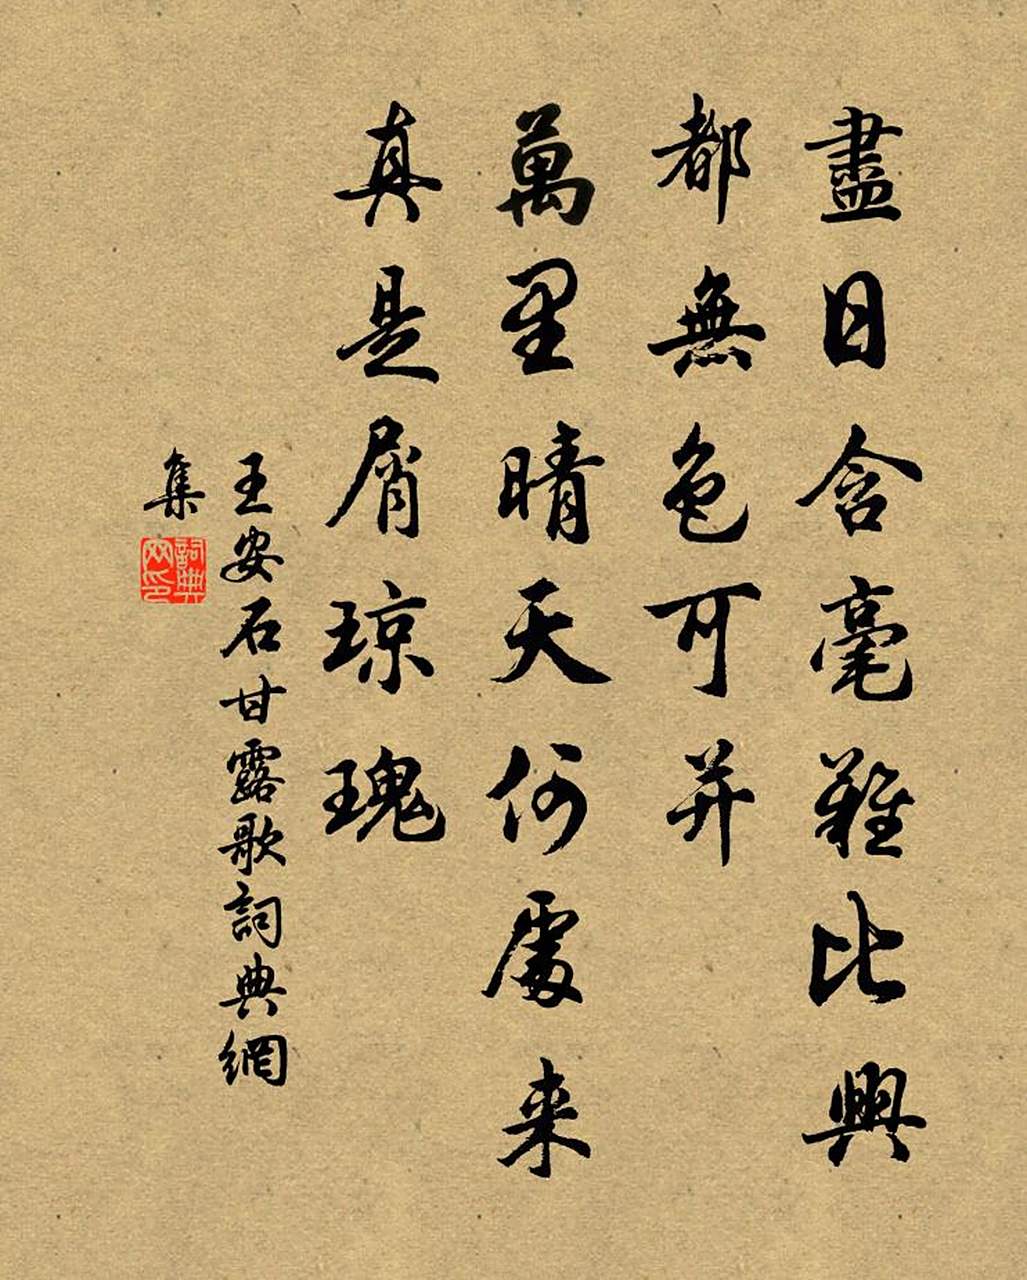 盡日含毫難比興
都無色可并
萬里晴天何處来
真是屑琼瑰
王安石甘露歌詞典網
集
詞典
网印